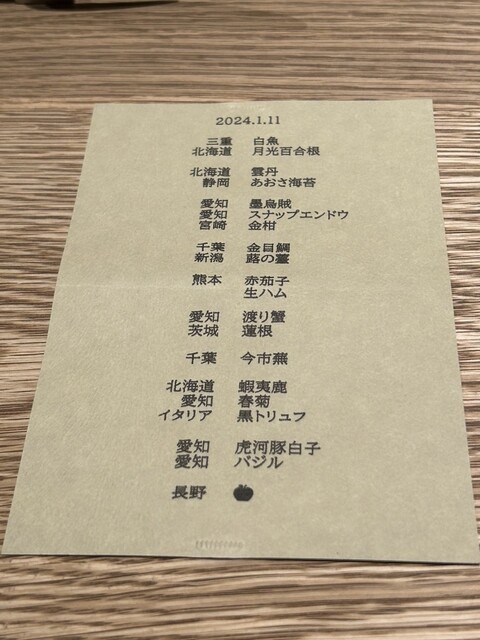 2024.1.11
三重 白魚
北海道 月光百合根
北海道 雲丹
静岡 あおさ海苔
愛知 墨烏賊
愛知 スナップエンドウ
宮崎 金柑
千葉 金目鯛
新潟 蕗の薹
熊本 赤茄子
生ハム
愛知 渡り蟹
茨城 蓮根
千葉 今市蕪
北海道 蝦夷鹿
愛知 春菊
イタリア 黒トリュフ
愛知 虎河豚白子
愛知 バジル
長野